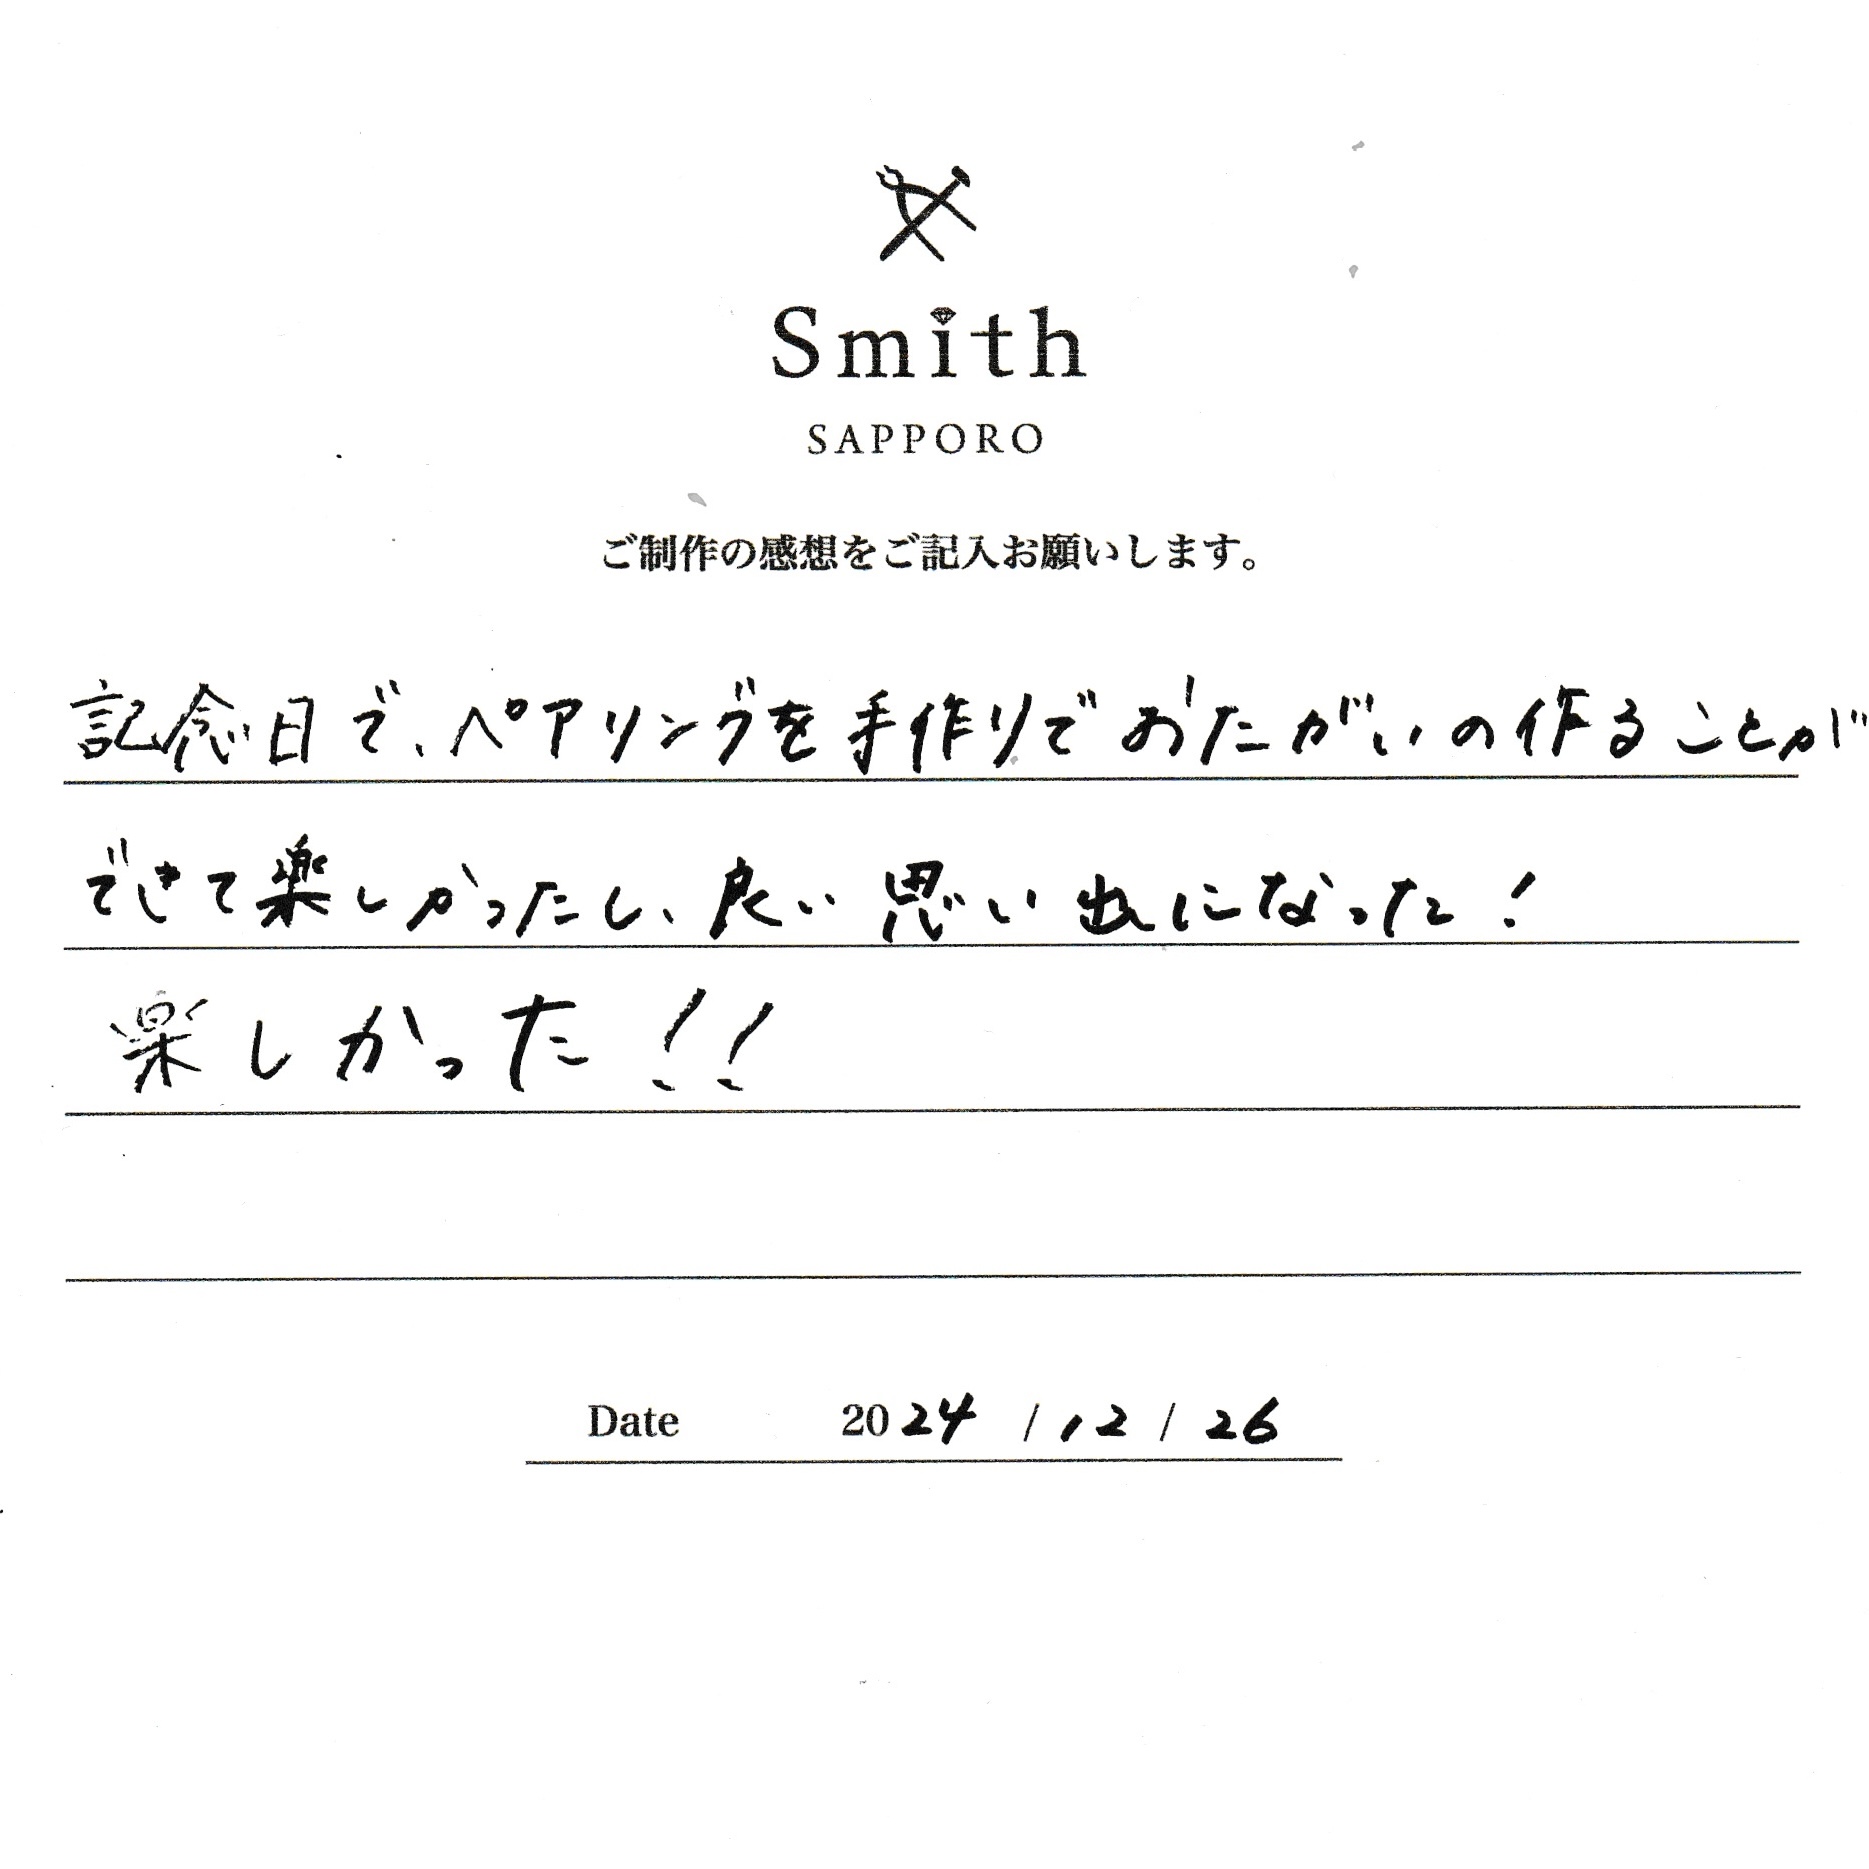 Smith
SAPPORO
ご制作の感想をご記入お願いします。
記念日で、ペアリングを手作りでおたがいの作ることが
できて楽しかったし、良い思い出になった!
楽しかった!!
Date 2024 / 12 / 26